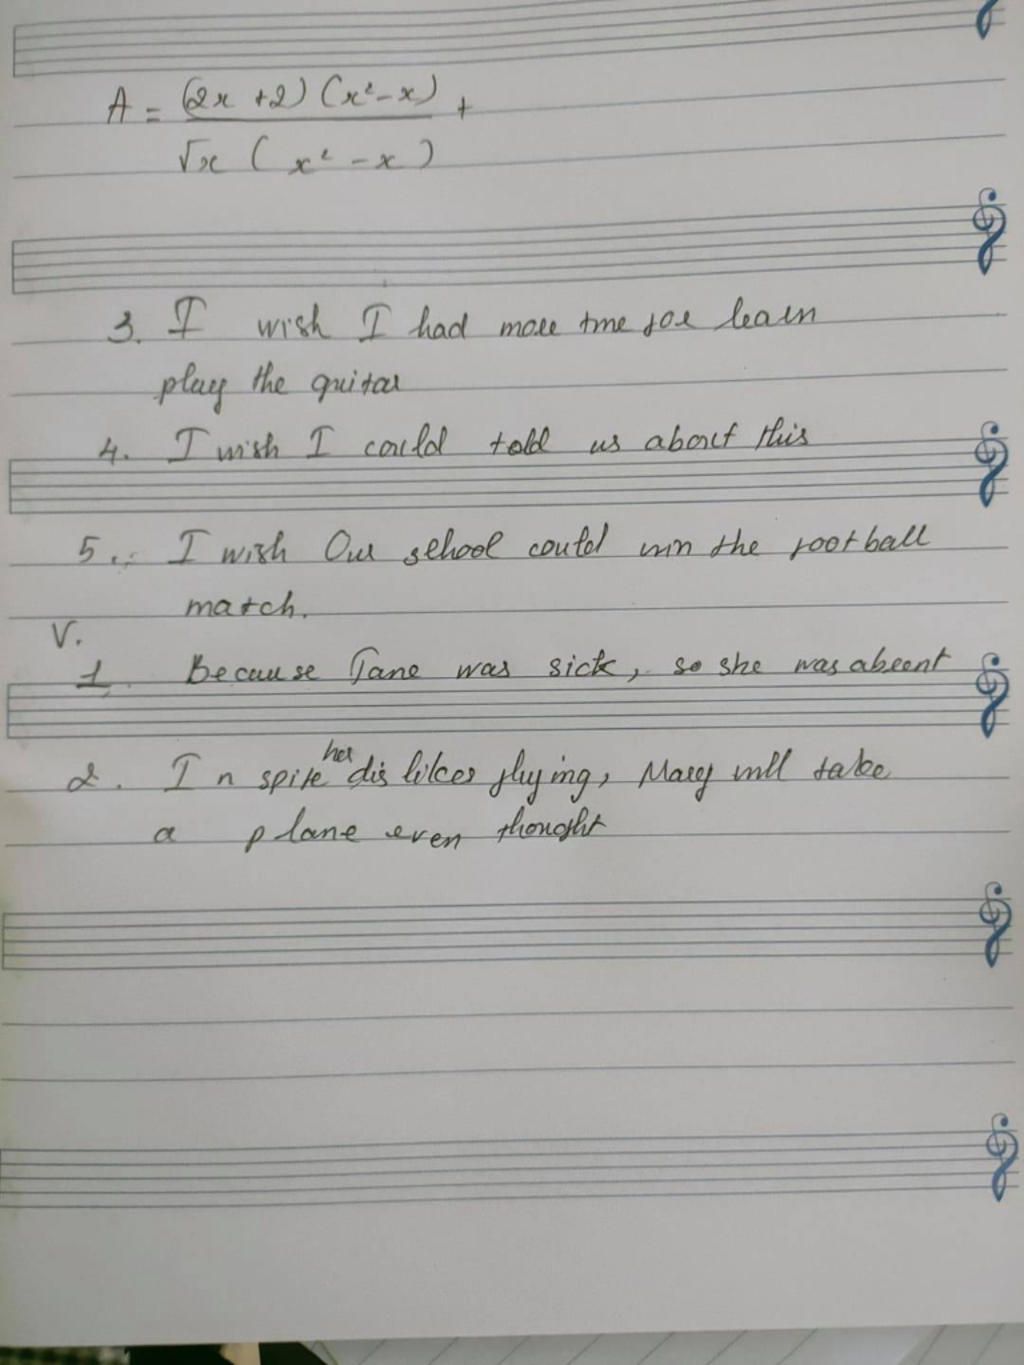 A = (2x + 2) (x² - x) +
√x ( x² - x )
3. I wish I had more tme for learn
play the guitar
4. I wish I could told us about this
5. I wish Our school could win the football
match.
V.
1 Because Jane was sick, so she was absent
her
2. In spite dis likes flying, Mary will take
a plane even thought